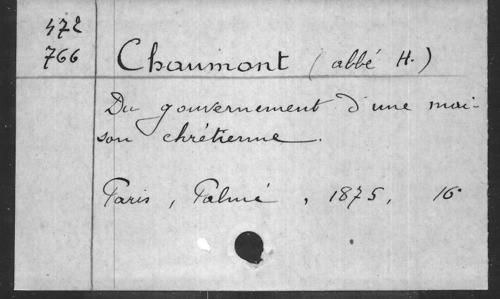 472
766
Chaumont (abbé H.)
Du gouvernement d'une mai-
son chrétienne.
Paris, Palmé, 1875, 16°